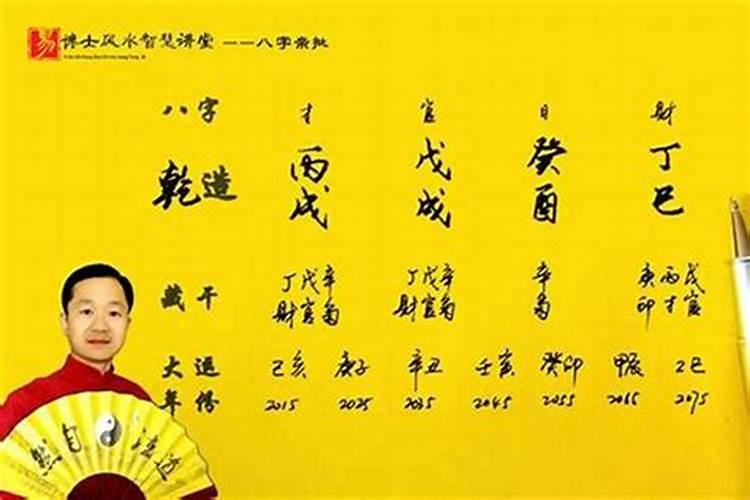 易 博士风水智慧讲堂 ——八字亲批
八字 才 官 日 財
乾造 丙戌 戊戌 癸酉 丁巳
藏干 丁戊辛 丁戊辛 辛 庚丙戊
財官 財官 印才官
大运 己亥 庚子 辛丑 壬寅 癸卯 甲辰 乙巳
年 2015 2025 2035 2045 2055 2065 2075
道法自然